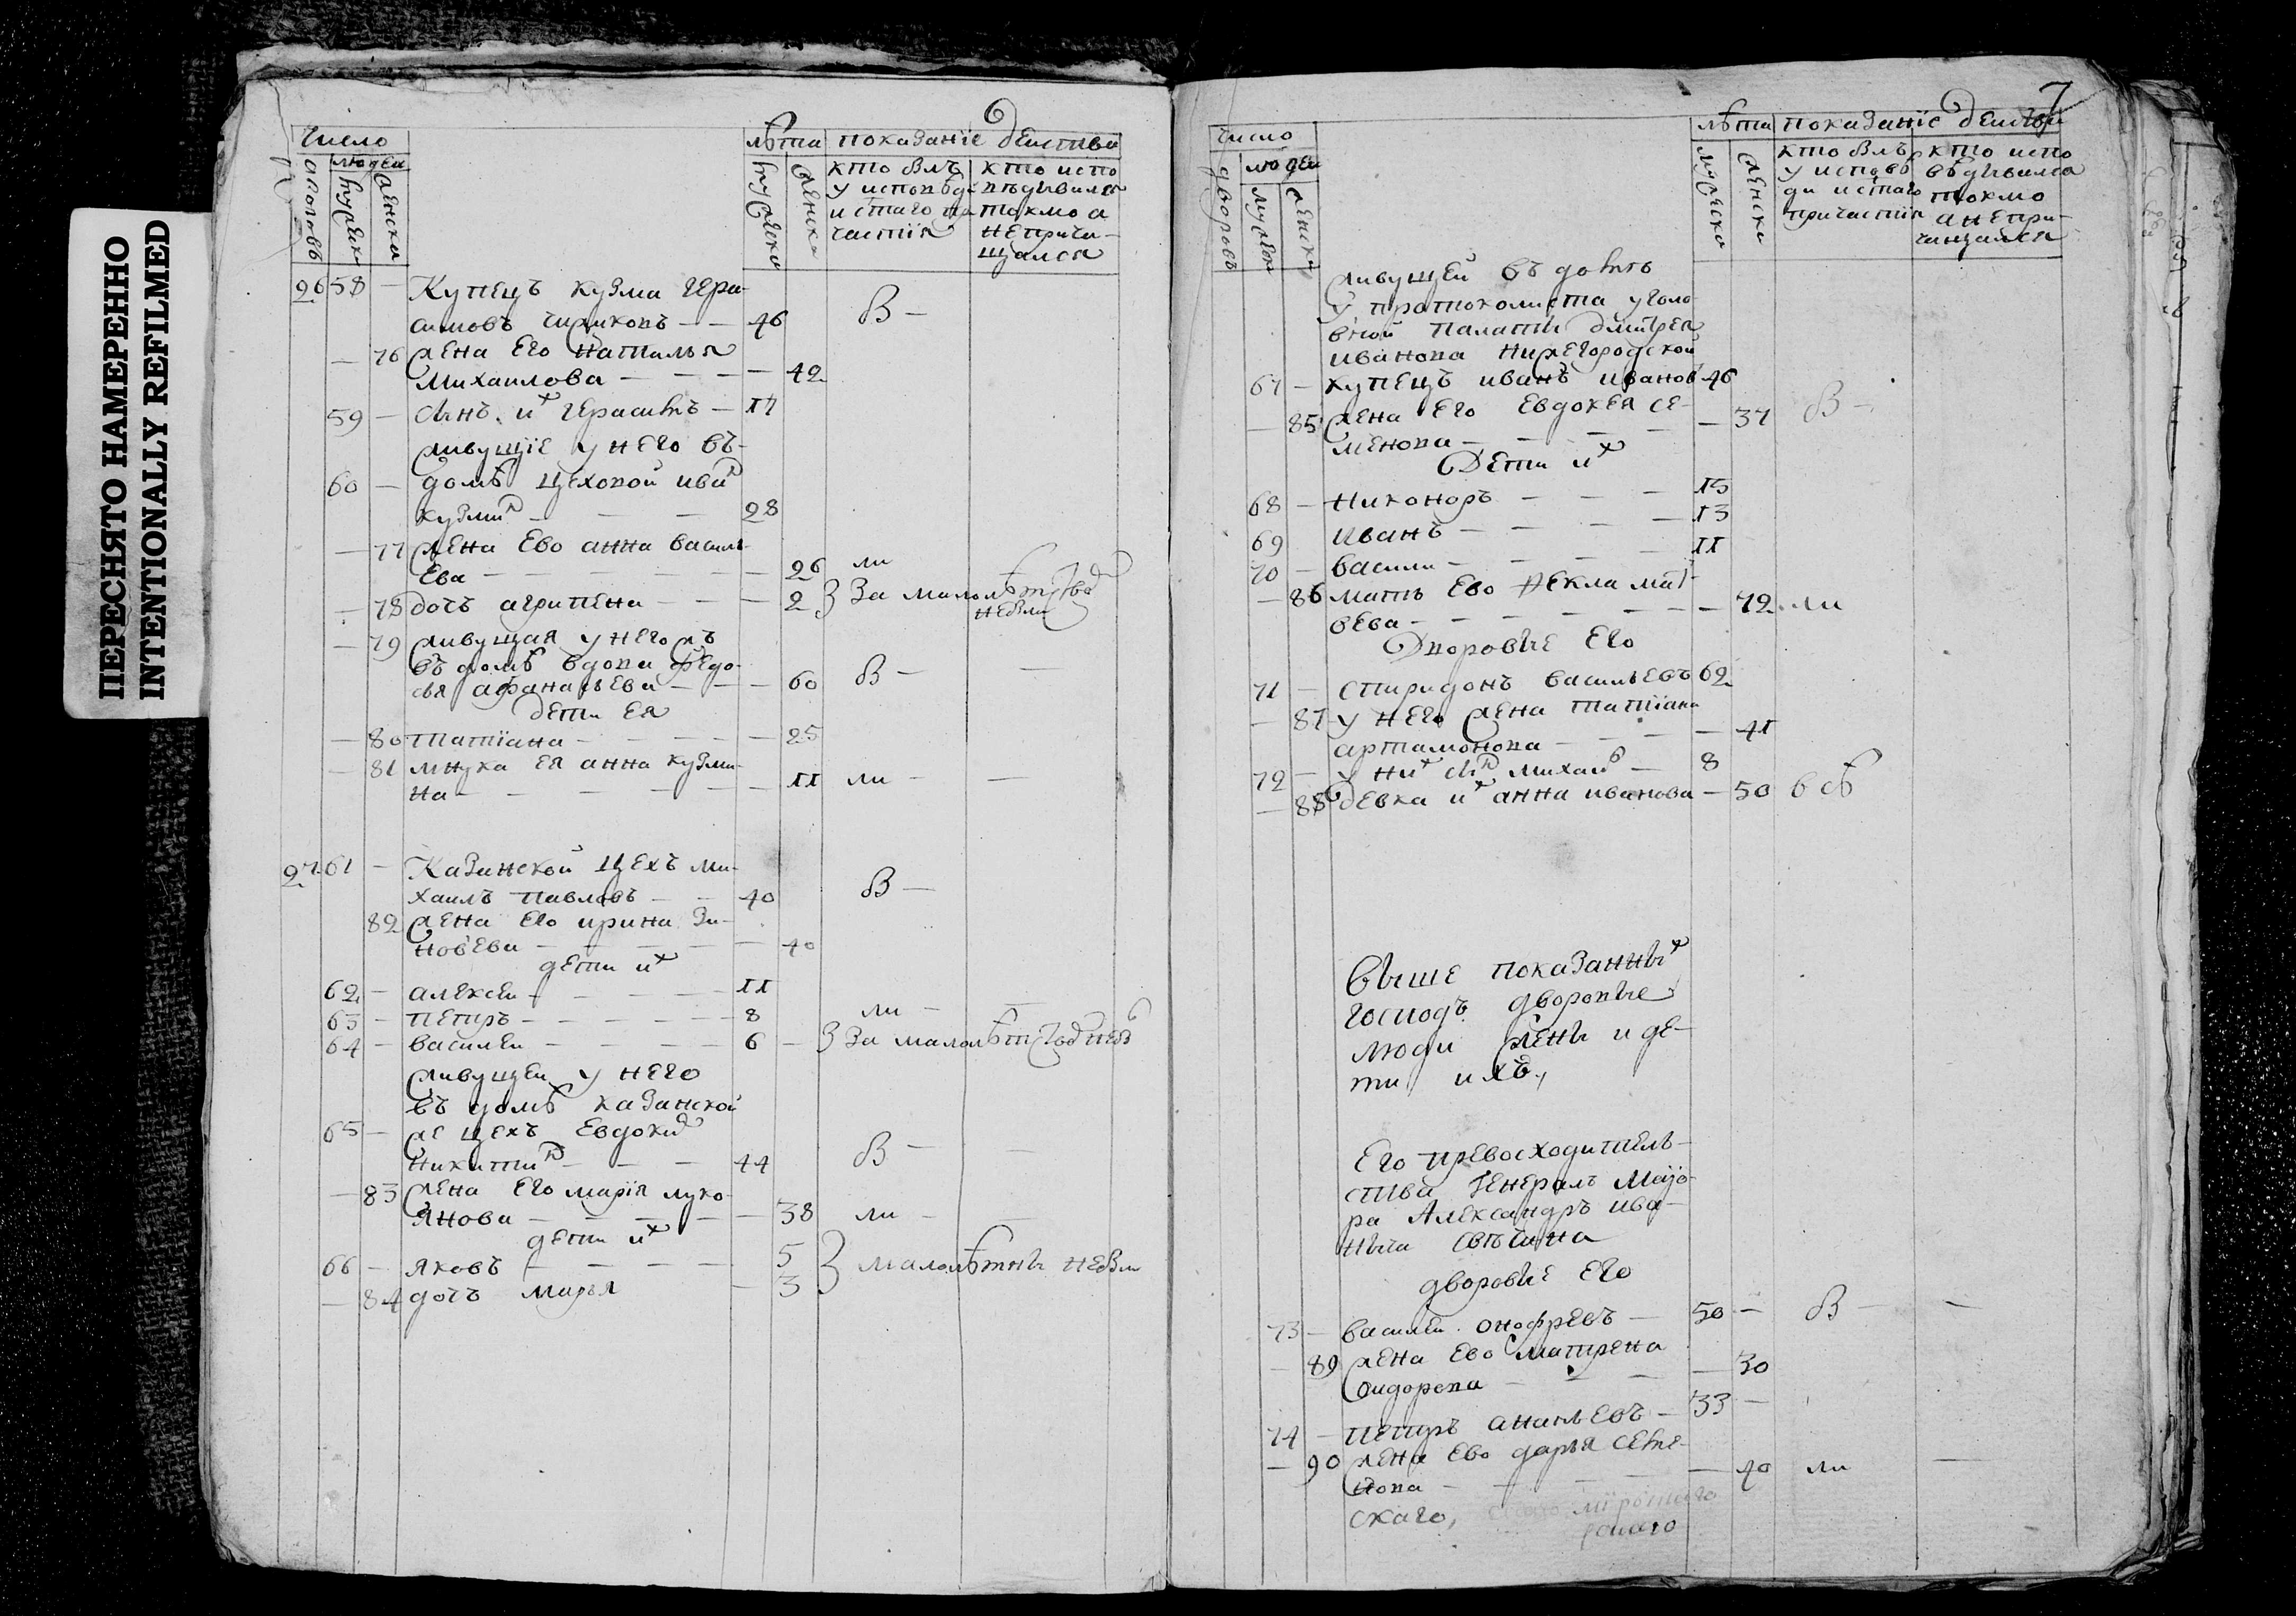 ПЕРЕСНЯТО НАМЕРЕННО
INTENTIONALLY REFILMED
число лѣта показанїе деиства
дворовъ людеи мужеска женска мужеска женска
кто былъ кто испо
у исповѣди вѣдывался
и с͠таго при токмо а
частїя не прича-
щался
26 58 — Купецъ кузма гера-
симовъ — — 46 В —
— 76 жена его наталья
Михаилова — — — — 42
59 — сынъ их герасимъ — 17
живущїе у него въ
60 — домѣ цеховои иван
кузмин — — — 28
— 77 жена ево анна василь
ева — — — 26 ли
— 78 дочь агрипена — — — 2 За малолѣтством
— 79 живущая у него жъ
въ домѣ вдова федо-
сья афанасьева — — — 60 В — —
дети ея
— 80 татїана — — — — 25
— 81 внука ея анна кузми-
на — — — — 11 ли — —
27 61 — Казанскои цехъ ми-
хаилъ павловъ — — 40 В —
82 жена его ирина зи-
новева — — — — 40
дети их
62 — алексеи — — — 11
63 — петръ — — — — 8 ли —
64 — василеи — — — — 6 — За малолѣтством
живущеи у него
въ домѣ казанскои
65 — же цехъ евдоким
никитин — — — 44 В — —
— 83 жена его марїя лукo-
янова — — — — 38 ли — —
дети их
66 — яковъ — — — — 5 малолѣтны
— 84 дочь марья — 3
7
число лѣта показанїе деиства
дворовъ людеи мужеска женска мужеска женска
кто былъ кто испо
у исповѣ вѣдывался
ди и с͠таго токмо
причастїя а не при-
чащался
живущеи въ домѣ
у протоколиста уголо
внои палаты дмитрея
иванова нижегородскои
67 — купецъ иванъ иванов 46
— 85 жена его евдокея се- — 37 В —
менова — — —
Дети их
68 — никоноръ — — — 15
69 иванъ — — — 13
70 — васили — — — — 11
— 86 мать ево фекла мат
веева — — — — — 72 ли
Дворовые его
71 — спиридонъ васильевъ 62
— 87 у него жена татїана
артамонова — — — — 41
72 — у них сын михаил — 8
— 88 девка их анна иванова — 50
Выше показанных
господъ дворовые
люди жены и де-
ти ихъ,
Его превосходитель-
ства генералъ маїо-
ра Александръ ива-
ныча свѣчина
дворовые его
73 — василеи онофревъ — 50 — В — —
— 89 жена ево матрена
сидорова — — — — 30
74 — петръ ананьевъ — 33 —
— 90 жена ево дарья семе-
нова — — — — 40 ли —
скаго,